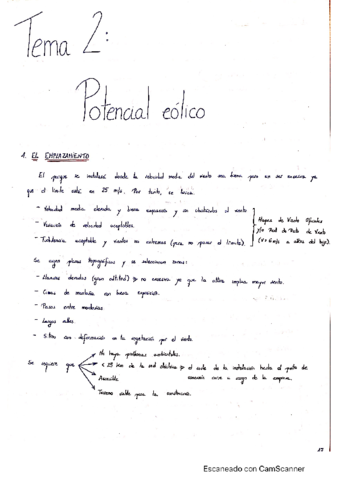 Tema 2:
Potencial eólico
1. EL EMPLAZAMIENTO
El parque se instalará donde la velocidad media del viento sea buena pero no sea excesiva ya
que el límite está en 25 m/s. Por tanto, se busca:
- Velocidad media elevada y buena exposición y sin obstáculos al viento
- Variación de velocidad aceptables.
- Turbulencia aceptable y vientos no extremos (para no pasar el límite).
Mapas de Viento Oficiales
y/o Red de Met. de Viento
Se cogen planos topográficos y se seleccionan zonas:
- Llanuras elevadas (gran altitud) no excesiva ya que la altura implica mayor viento.
- Cimas de montañas con buena exposición.
- Pasos entre montañas
- Lugares altos
- Sitios con deformación en la vegetación por el viento.
Se requiere que
No haya problemas ambientales.
< 25 km de la red eléctrica el coste de la instalación hasta el punto de
conexión corre a cargo de la empresa.
Accesible
Terreno válido para la
Escaneado con CamScanner